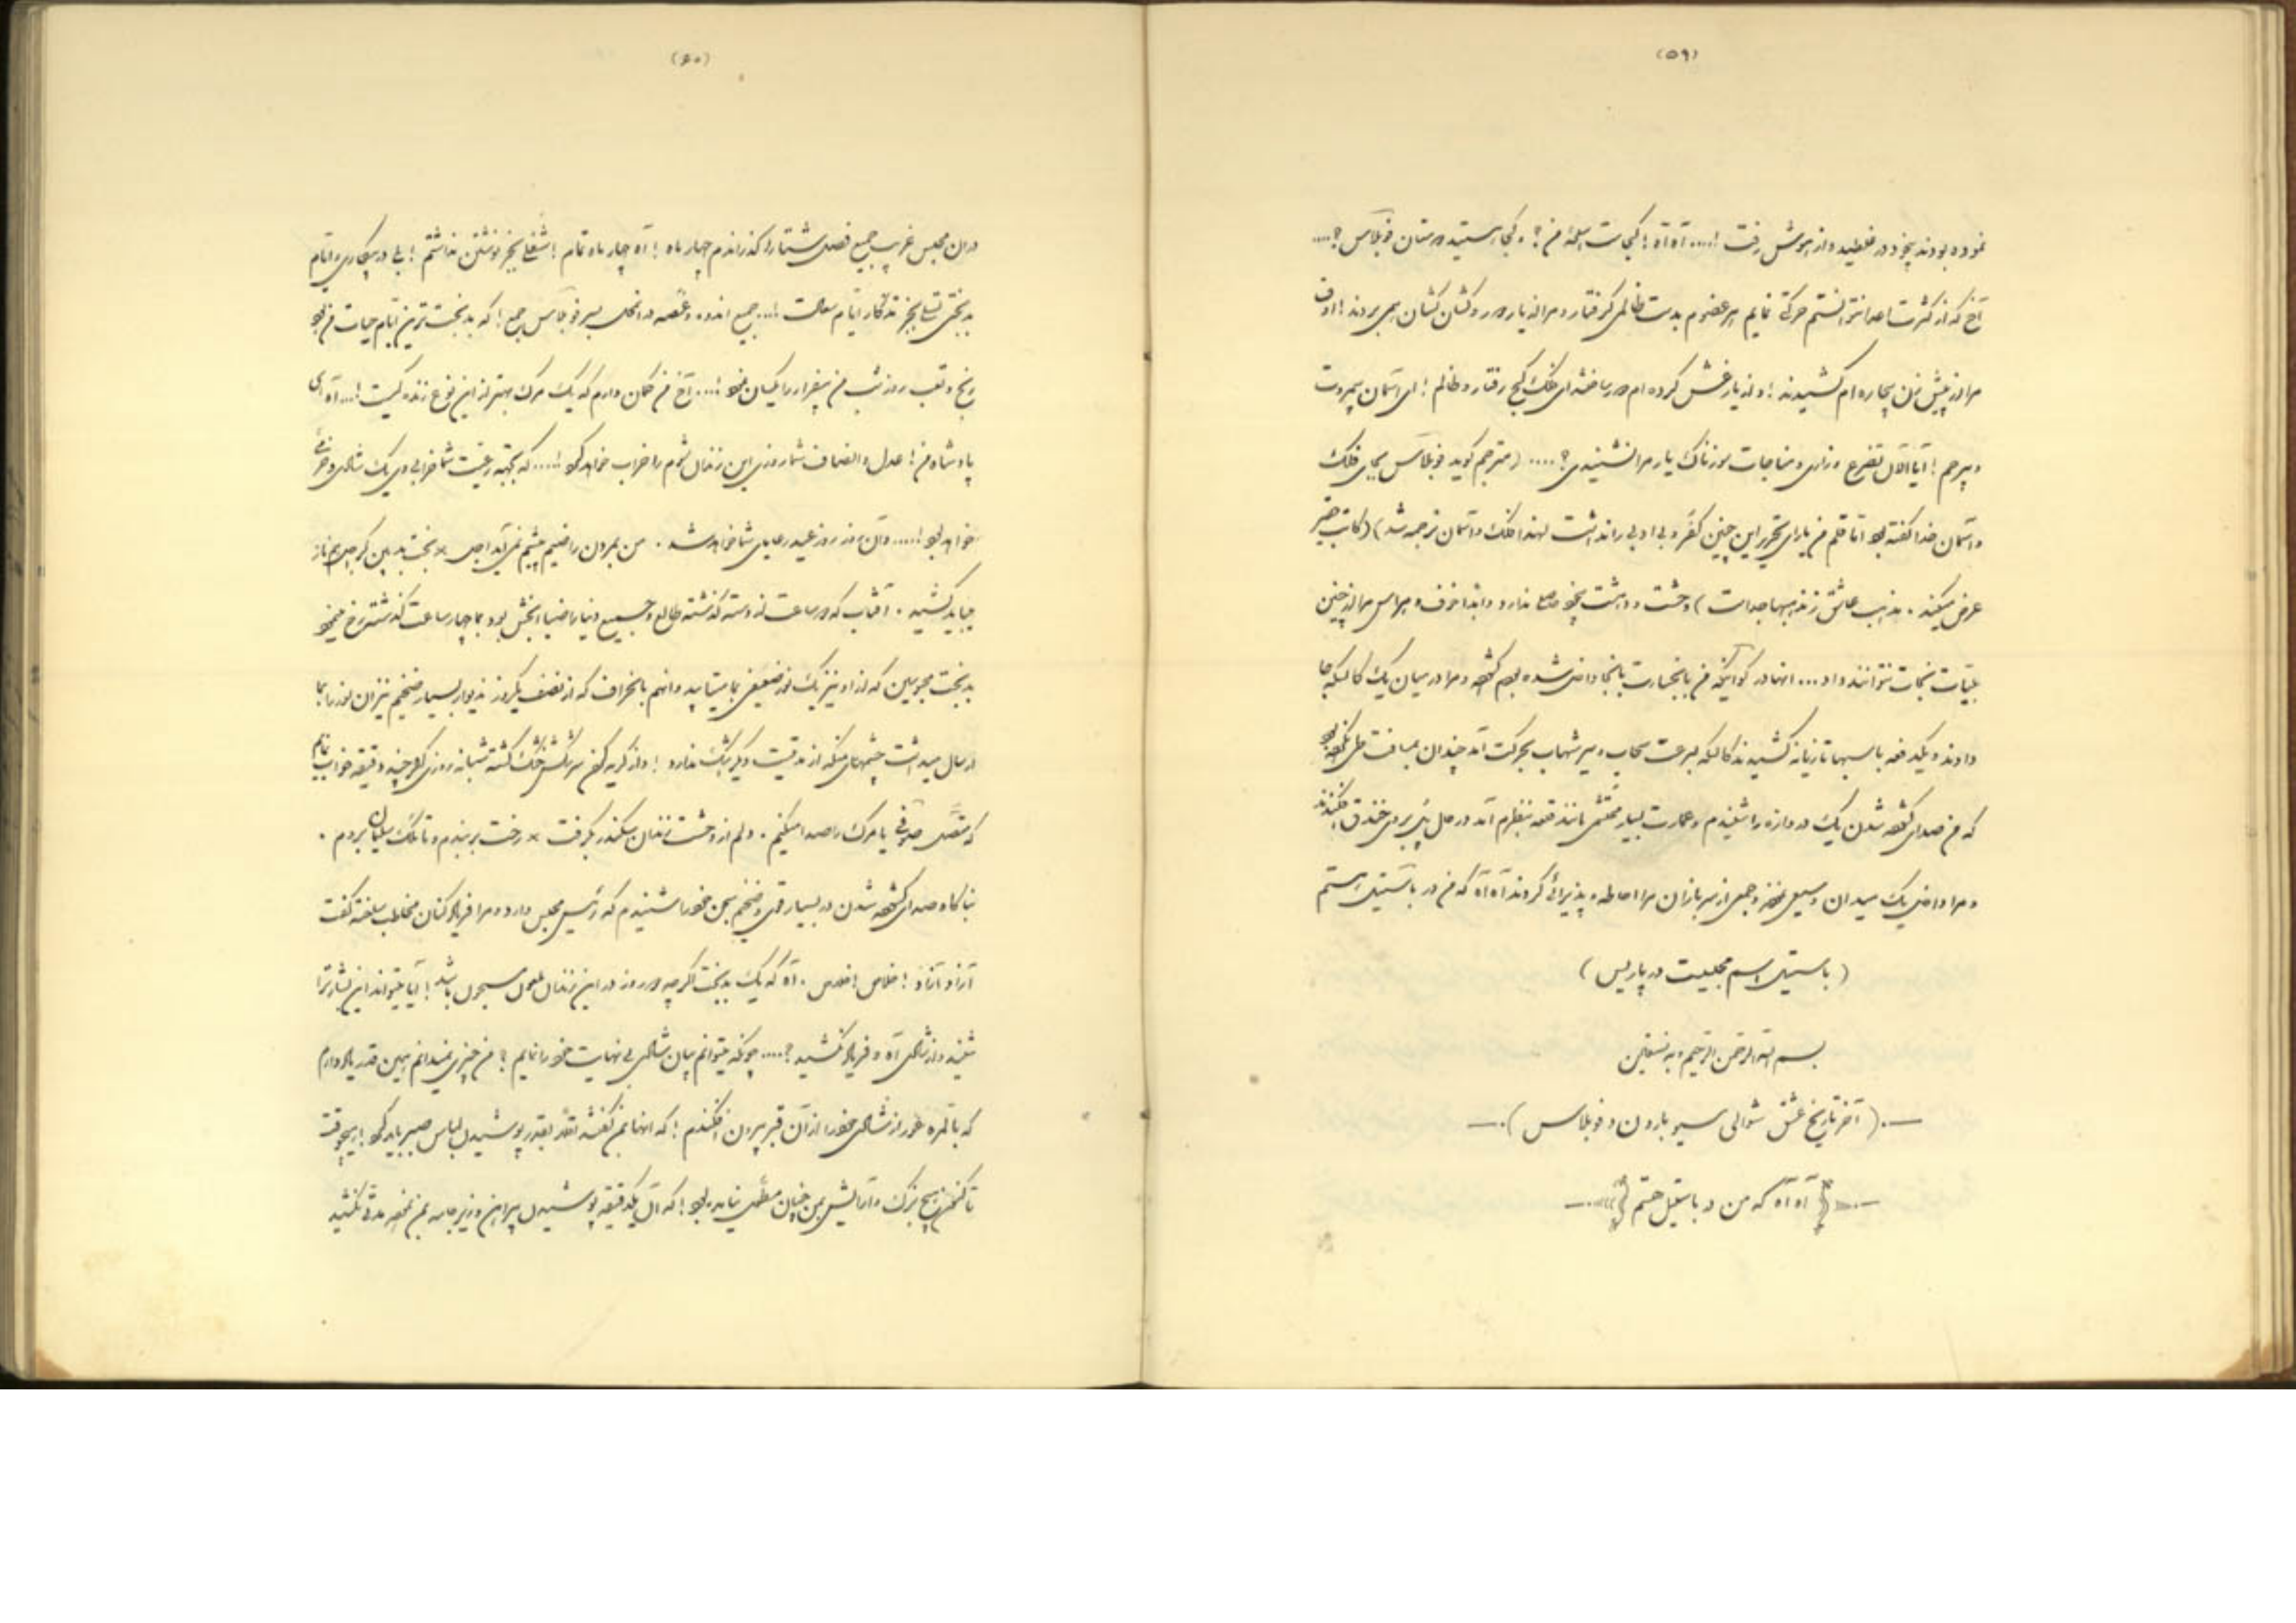 (۵۹)
نموده بودند بیخود در غلطید و از هوش رفت !.... آه آه ! کجاست اسلحهٔ من ؟ و کجا هستید دوستان فوبلاس ؟....
آخ که از کثرت اعدا نتوانستم حرکتی نمایم هر عضوم بدست ظالمی گرفتار و مرا از یار دور و کشان کشان همی بردند ! اوف
مرا از پیش زن بیچاره‌ام کشیدند ! و از یار غش کرده‌ام دور ساختند ای فلک کج رفتار و ظالم ! ای آسمان بیمروت
و بیرحم ! آیا الآن تضرع و زاری و مناجات سوزناک یار مرا نشنیدی ؟.... (مترجم گوید فوبلاس بجای فلک
و آسمان خدا گفته بود اما قلم من یارای تحریر این چنین کفر و بی ادبی را نداشت لهذا فلک و آسمان ترجمه شد) (کاتب حقیر
عرض میکند . مذهب عاشق ز مذهبها جداست) وحشت و دهشت بخود اصلا ندارد و ابدا خوف و هراس مرا از چنین
بلیات نجات نتوانند داد... آنها در کوانیکه من با بخسارت بآنجا داخل شده بودم گشود و مرا در میان یک کالسکه جا
دادند و یکدفعه باسبها تازیانه کشیدند کالسکه بسرعت سحاب و سیر شهاب بحرکت آمد چندان مسافت طی نکرده بود
که من صدای گشوده شدن یک دروازه را شنیدم و عمارت بسیار محتشمی مانند قلعه بنظرم آمد در حال پل بر روی خندق افکندند
و مرا داخل یک میدان وسیعی نمودند و جمعی از سربازان مرا احاطه و پذیرائی کردند آه آه که من در باستیل هستم
(باستیل اسم محبسیت در پاریس)
بسم الله الرحمن الرحیم و به نستعین
—.(آخر تاریخ عشق شوالی سیو بارون دو فوبلاس).—
آه آه که من در باستیل هستم
(۶۰)
در ان محبس غریب جمیع فصل شتا را گذراندم چهار ماه ! آه چهار ماه تمام ! شغلی بجز نوشتن نداشتم ! بلی در بیکاری و ایام
بدبختی تسلی بجز تذکار ایام سعادت !... جمیع اندوه و غصه در انحال بسر فوبلاس جمع ! که بدبخت‌ترین ایام حیات من بود
رنج و تعب روز شب من بیقرار را یکسان نمود !... آخ من گمان دارم که یک مرک بهتر از این نوع زنده گیست !... آه ای
پادشاه من ! عدل و انصاف شما روزی این زندان شوم را خراب خواهد کرد !.... که بجهة رعیت شما خرابی وی یک شادی و خرمی
خواهد بود !..... و آن روز روز عید رعایای شما خواهد شد . من بمردن راضیم پیشم نمی‌آید اجل × بخت بد بین کز اجل هم ناز
میباید کشید . آفتاب که دو ساعت از دسته گذشته طالع و جمیع دنیا را ضیا بخش بود بما چهار ساعت گذشته رخ مینمود
بدبخت محبوسین که از او نیز یک نور ضعیفی بما میتابید و آنهم بانحراف که از نصف یکروز دیوار بسیار ضخیم نیز آن نور را بما
ارسال میداشت چشمهای منکه از مدتیست دیگر اشک ندارد ! و از گریه کردن سرشکش خشک گشته شبانه روزی اگر چند دقیقه خواب نمایم
که متصل صوفی یا مرک را صدا میکنم . دلم از وحشت زندان سکندر بگرفت × رخت بربندم و تا ملک سلیمان بروم .
بناگاه صدای گشوده شدن در بسیار قوی و ضخیم سجن خود را شنیدم که رئیس محبس وارد و مرا فریاد کنان مخاطب ساخته گفت
آزاد آزاد ! خلاص خلاص . آه که یک بدبخت اگر چه دو روز در این زندان ملعون مسجون باشد ! آیا میتواند این بشارت را
شنید و از شادی آه و فریاد نکشید ؟.... چونکه میتوانم بیان شادی بی نهایت خود را نمایم ؟ من چیزی نمیدانم همین قدر یاد دارم
که بالمره خود را از شادی خود را از آن قبر بیرون افکندم ! که آنها بمن گفتند اقلا بقدر پوشیدن لباس صبر باید کرد ! هیچوقت
تاکنون هیچ بزک و آرایش بمن چنان مطول نیامده بود ! که الآن یکدقیقه پوشیدن پیراهن و زیر جامه بمن بقدر مدتی کشید